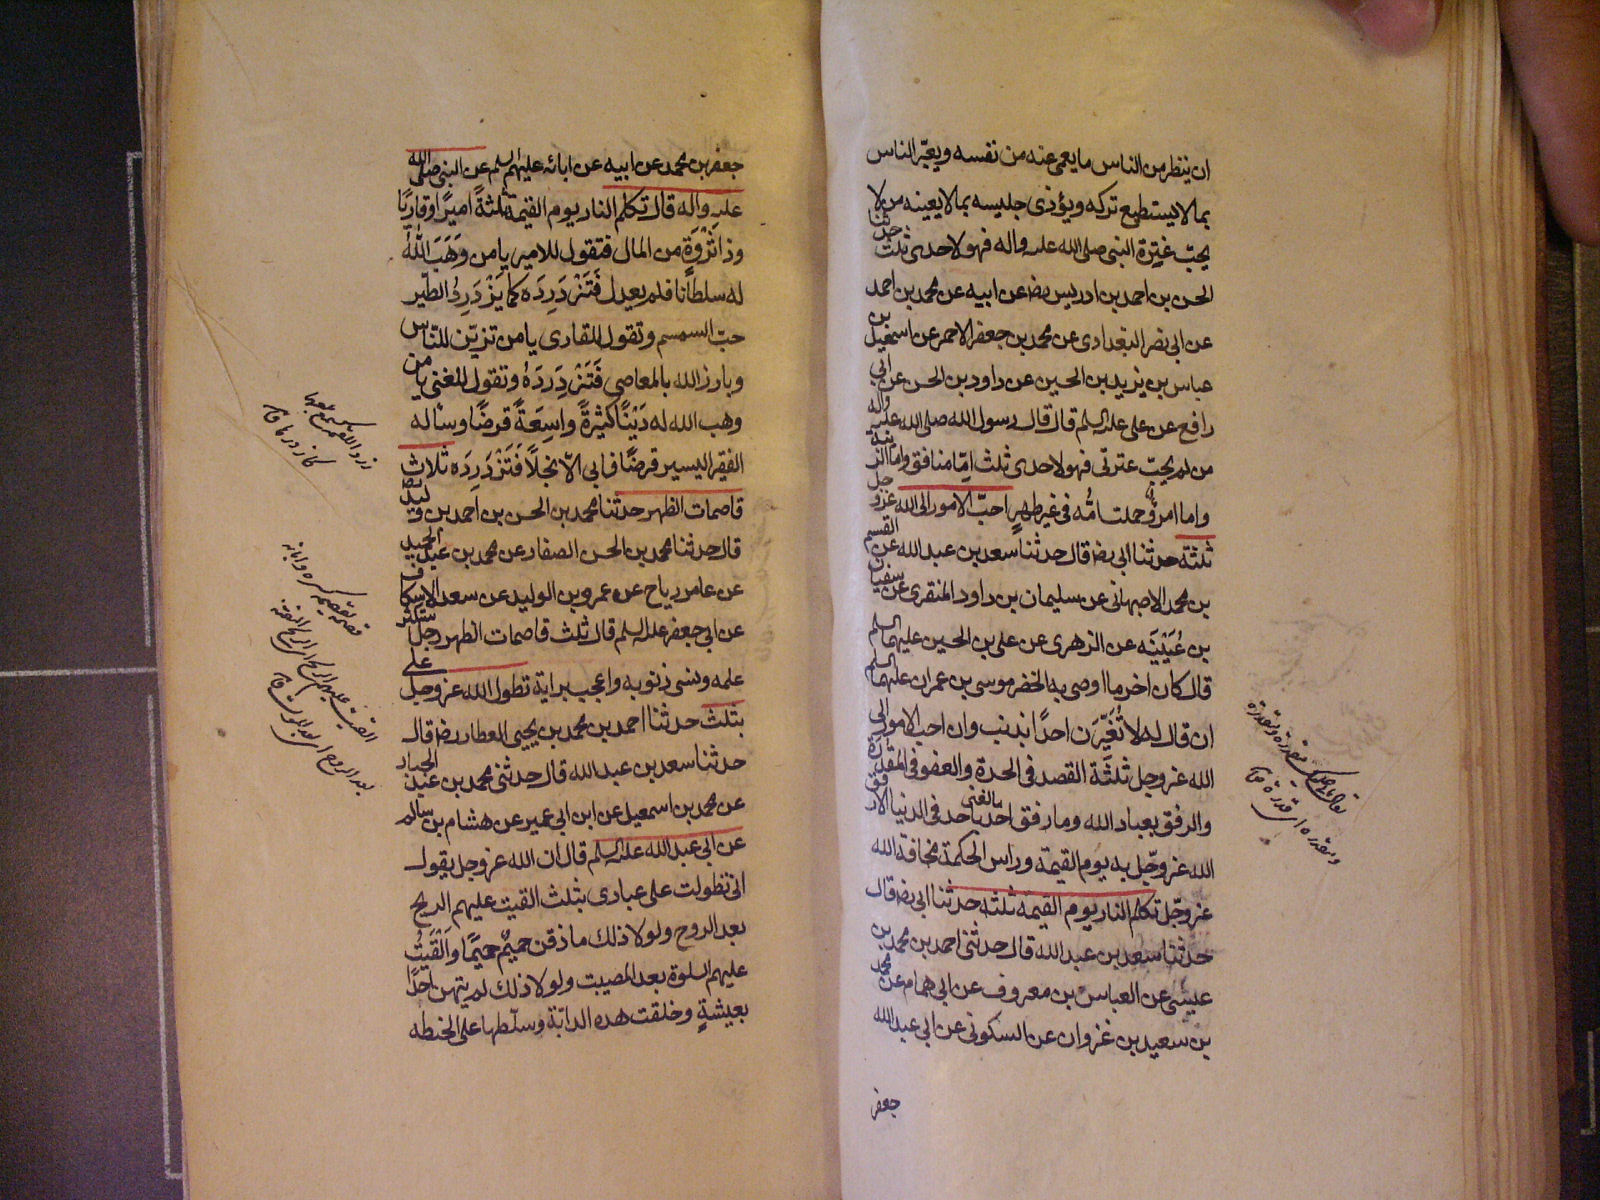 ان ينظر من الناس ما يعمى عنه من نفسه ويعيّر الناس
بما لا يستطيع تركه ويؤذى جليسه بما لا يعينه من لا
يحبّ عترة النبى صلى الله عليه واله فهو لاحدى ثلث حدثنا
الحسن بن احمد بن ادريس رض عن ابيه عن محمد بن احمد
عن ابى نصر البغدادى عن محمد بن جعفر الاحمر عن اسمعيل بن
عباس بن يزيد بن الحسين عن داود بن الحسن عن ابى
رافع عن على عليه السلم قال قال رسول الله صلى الله عليه واله
من لم يحبّ عترتى فهو لاحدى ثلث امّا منافق واما الزنية
واما امرؤ حملت امُّه فى غير طهرٍ احبّ الامور الى الله عز وجل
ثلثة حدثنا ابى رض قال حدثنا سعد بن عبد الله عن القسم
بن محمد الاصبهانى عن سليمان بن داود المنقرى عن سفيان
بن عُيَيْنَه عن الزهرى عن على بن الحسين عليهما السلم
قال كان اخر ما اوصى به الخضر موسى بن عمران عليهما السلم
ان قال له لا تُعَيِّرَن احدًا بذنب وان احب الامور الى
الله عز وجل ثلثَة القصد فى الجدة والعفو فى المقدرة
والرفق بعباد الله وما رفق احد باحد فى الدنيا الا رفق
الله عز وجّل به يوم القيمة وراس الحكمة مخافة الله
عز وجّل تكلم النار يوم القيمة ثلثه حدثنا ابى رض قال
حدثنا سعد بن عبد الله قال حدثنى احمد بن محمد بن
عيسى عن العباس بن معروف عن ابى همام عن محمد
بن سعيد بن غزوان عن السكونى عن ابى عبد الله
جعفر
جعفر بن محمد عن ابيه عن ابائه عليهم السلم عن النبى صلى الله
عليه واله قال تكلم النار يوم القيمة ثلثةً اميرًا وقاريًا
وذا ثَرْوَةٍ من المال فتقول للامير يا من وَهَبَ اللهُ
له سلطانا فلم يعدل فَتَزْدَرِدَه كما يَزْدَرِدُ الطّير
حبّ السمسم وتقول للقارى يا من تزيّن للناس
وبارز الله بالمعاصى فَتَزْدَرِدَهُ وتقول للغنى يا من
وهب الله له دَيْنًا كثيرةً واسِعَةً قرضًا وساله
الفقير اليسير قرضًا فابى الّا بخلًا فَتَزْدَرِدَه ثلاث
قاصمات الظهر حدثنا محمد بن الحسن بن احمد بن وليد رض
قال حدثنا محمد بن الحسن الصفار عن محمد بن عبد الجبيل
عن عامر رياح عن عمرو بن الوليد عن سعد الاسكاف
عن ابى جعفر عليه السلم قال ثلث قاصمات الظهر رجل ستكثر
علمه ونسى ذنوبه واعجب برايه تطول الله عز وجل على
بثلث حدثنا احمد بن محمد بن يحيى العطار رض قال
حدثنا سعد بن عبد الله قال حدثنى محمد بن عبد الجبار
عن محمد بن اسمعيل عن ابن ابى عمير عن هشام بن سالم
عن ابى عبد الله عليه السلم قال ان الله عز وجل يقول
انى تطولت على عبادى بثلث القيت عليهم الريح
بعد الروح ولولا ذلك ما دفن حميمٌ حميمًا والْقَيْتُ
عليهم السلوة بعد المصيبت ولولا ذلك لم يتهن احدًا
بعيشةٍ وخلقت هذه الدابّة وسلّطها على الحنطه